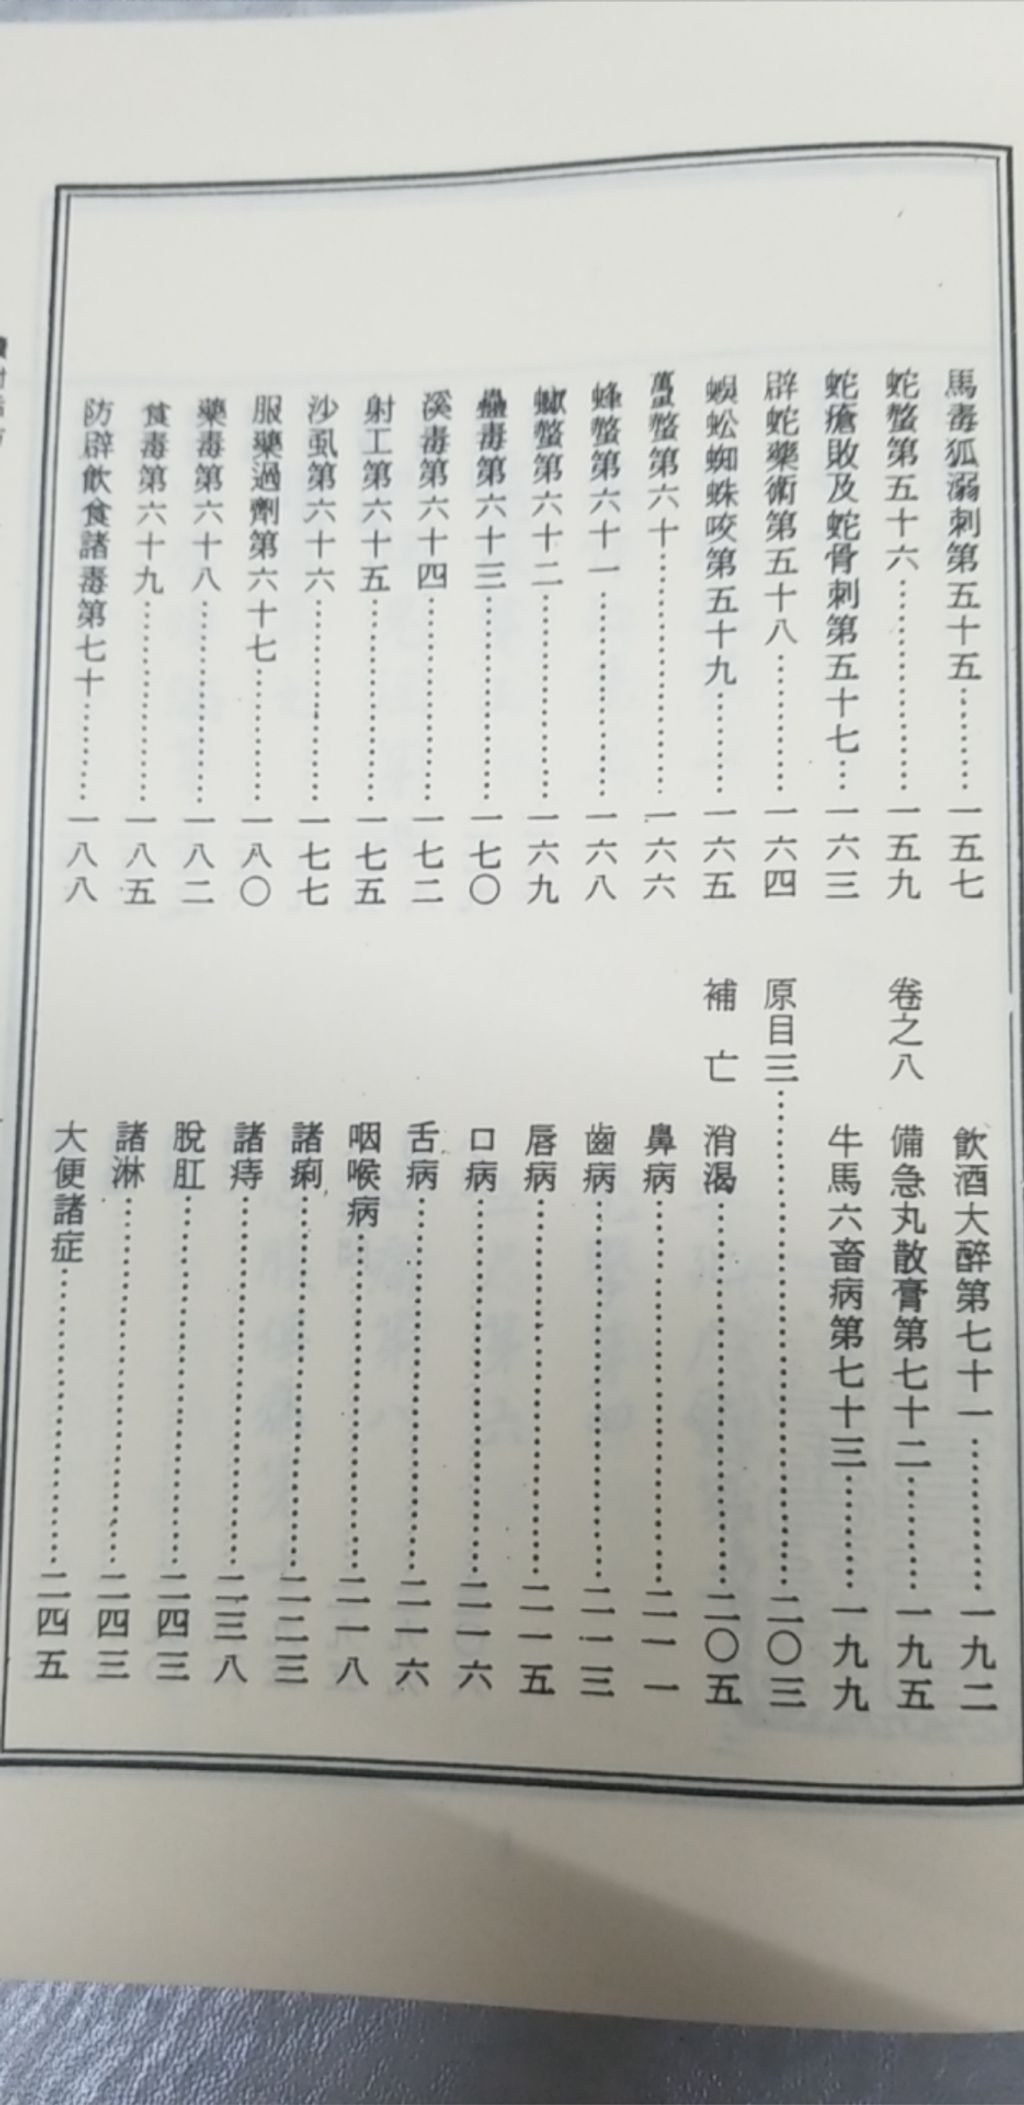 馬毒狐溺刺第五十五………一五七
蛇螫第五十六………一五九
蛇瘡敗及蛇骨刺第五十七…一六三
辟蛇藥術第五十八………一六四
蜈蚣蜘蛛咬第五十九………一六五
蠆螫第六十………一六六
蜂螫第六十一………一六八
蠍螫第六十二………一六九
蠱毒第六十三………一七〇
溪毒第六十四………一七二
射工第六十五………一七五
沙虱第六十六………一七七
服藥過劑第六十七………一八〇
藥毒第六十八………一八二
食毒第六十九………一八五
防辟飲食諸毒第七十………一八八
飲酒大醉第七十一………一九二
卷之八 備急丸散膏第七十二………一九五
牛馬六畜病第七十三………一九九
原目三………二〇三
補亡 消渴………二〇五
鼻病………二一一
齒病………二一三
唇病………二一五
口病………二一六
舌病………二一六
咽喉病………二一八
諸痢………二二三
諸痔………二三八
脫肛………二四三
諸淋………二四三
大便諸症………二四五